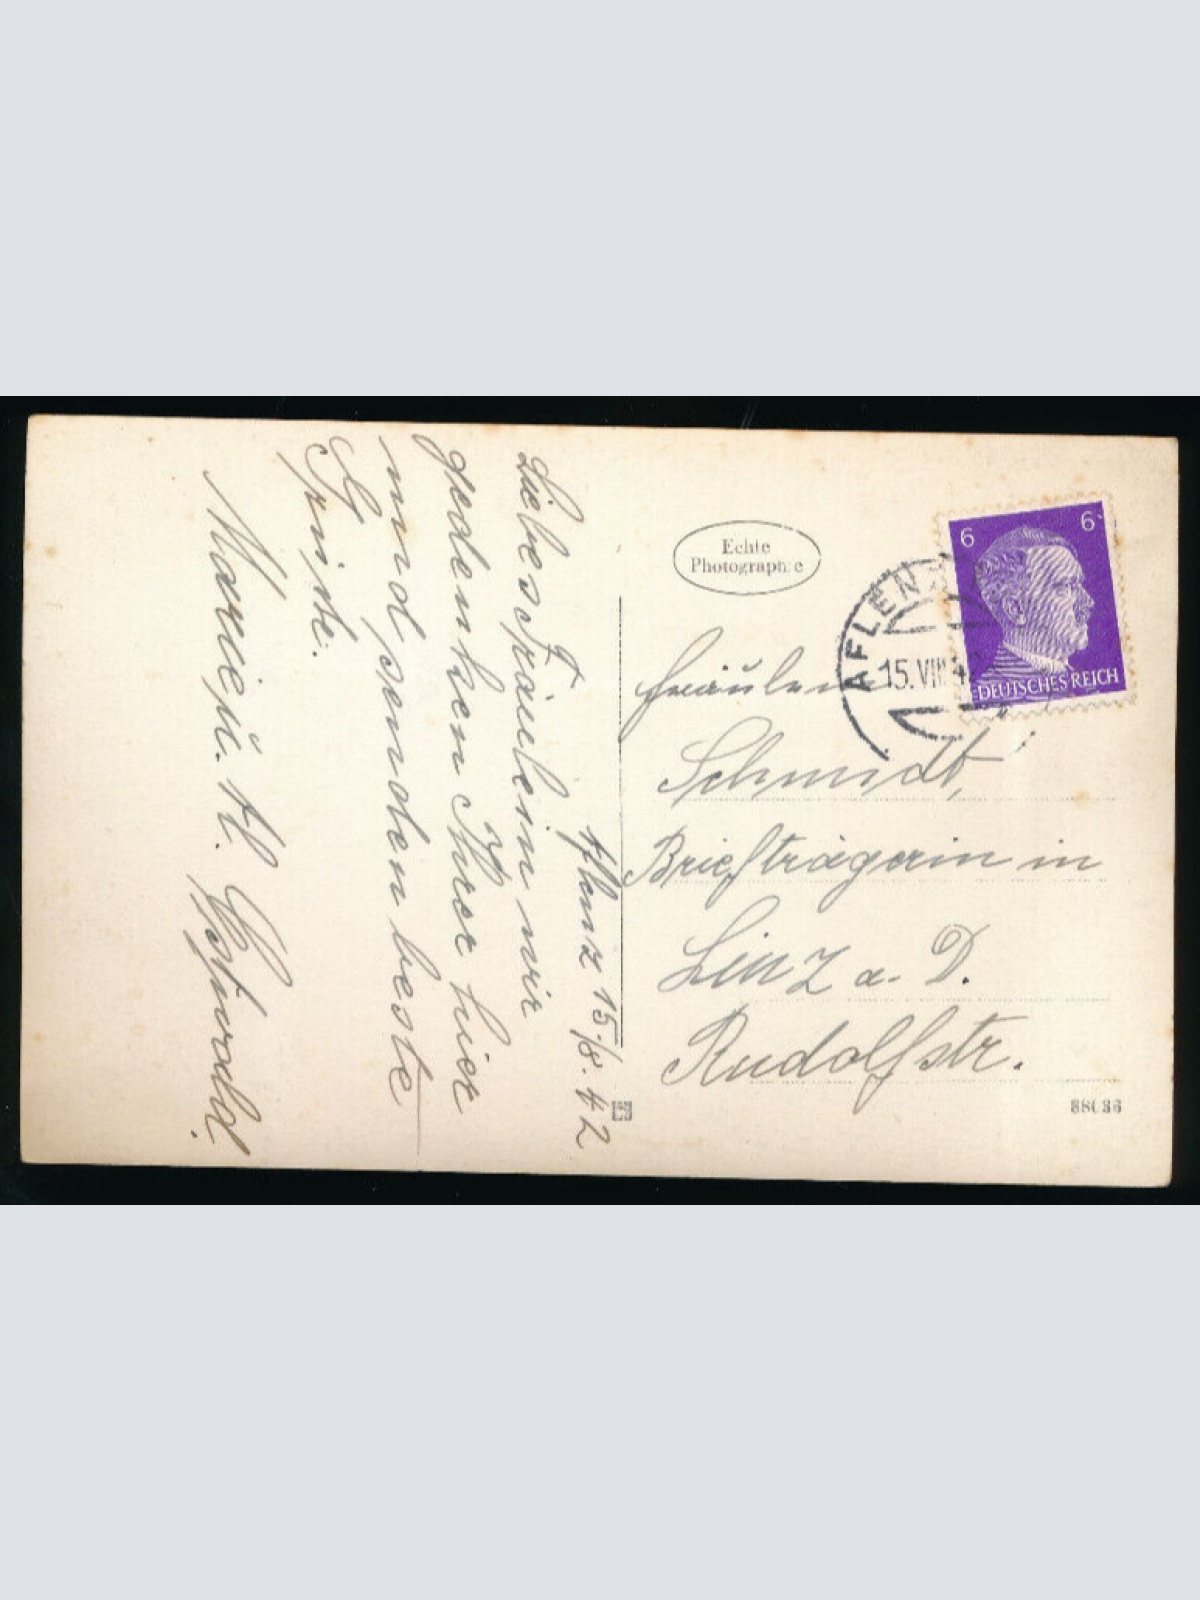 Aflenz 15./8. 42
Liebes Fräulein wir
gedenken Ihrer hier
und senden beste
Grüße.
Marie u. H.
Echte
Photographie
6 6
DEUTSCHES REICH
AFLENZ
15.VIII.4
Fräulein
Schmidt,
Briefträgerin in
Linz a. D.
Rudolfstr.